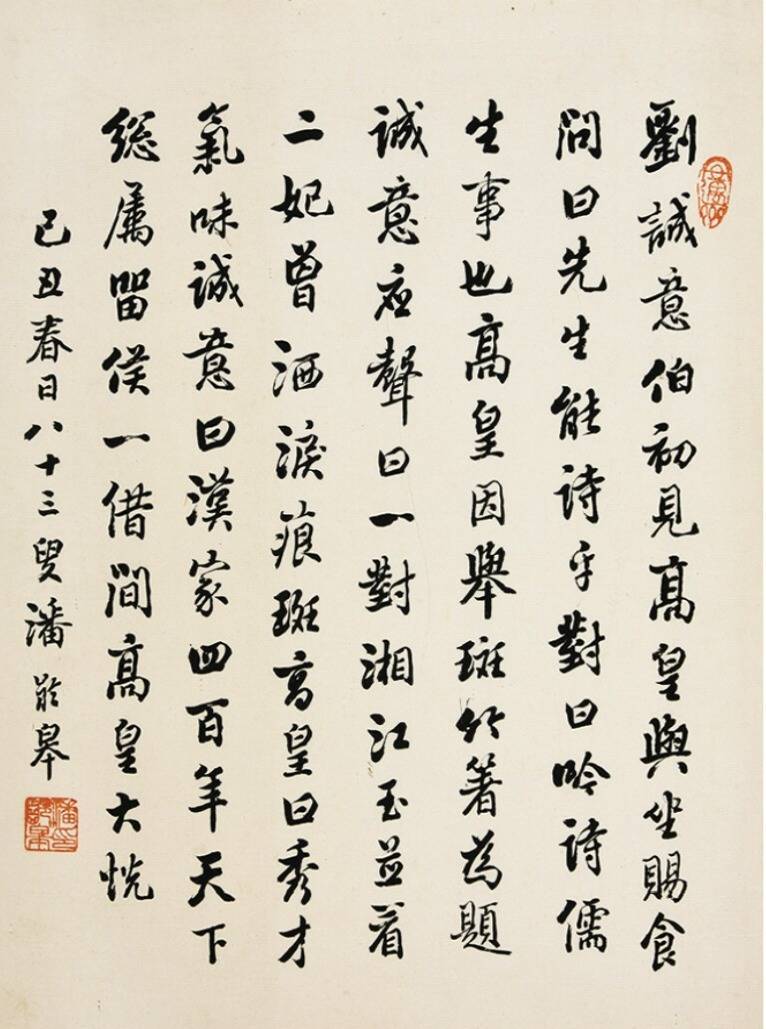 劉誠意伯初見高皇與坐賜食
問曰先生能詩乎對曰吟詩儒
生事也高皇因舉斑竹箸為題
誠意應聲曰一對湘江玉並看
二妃曾洒淚痕斑高皇曰秀才
氣味誠意曰漢家四百年天下
總屬留侯一借間高皇大悅
己丑春日八十三叟潘齡皋